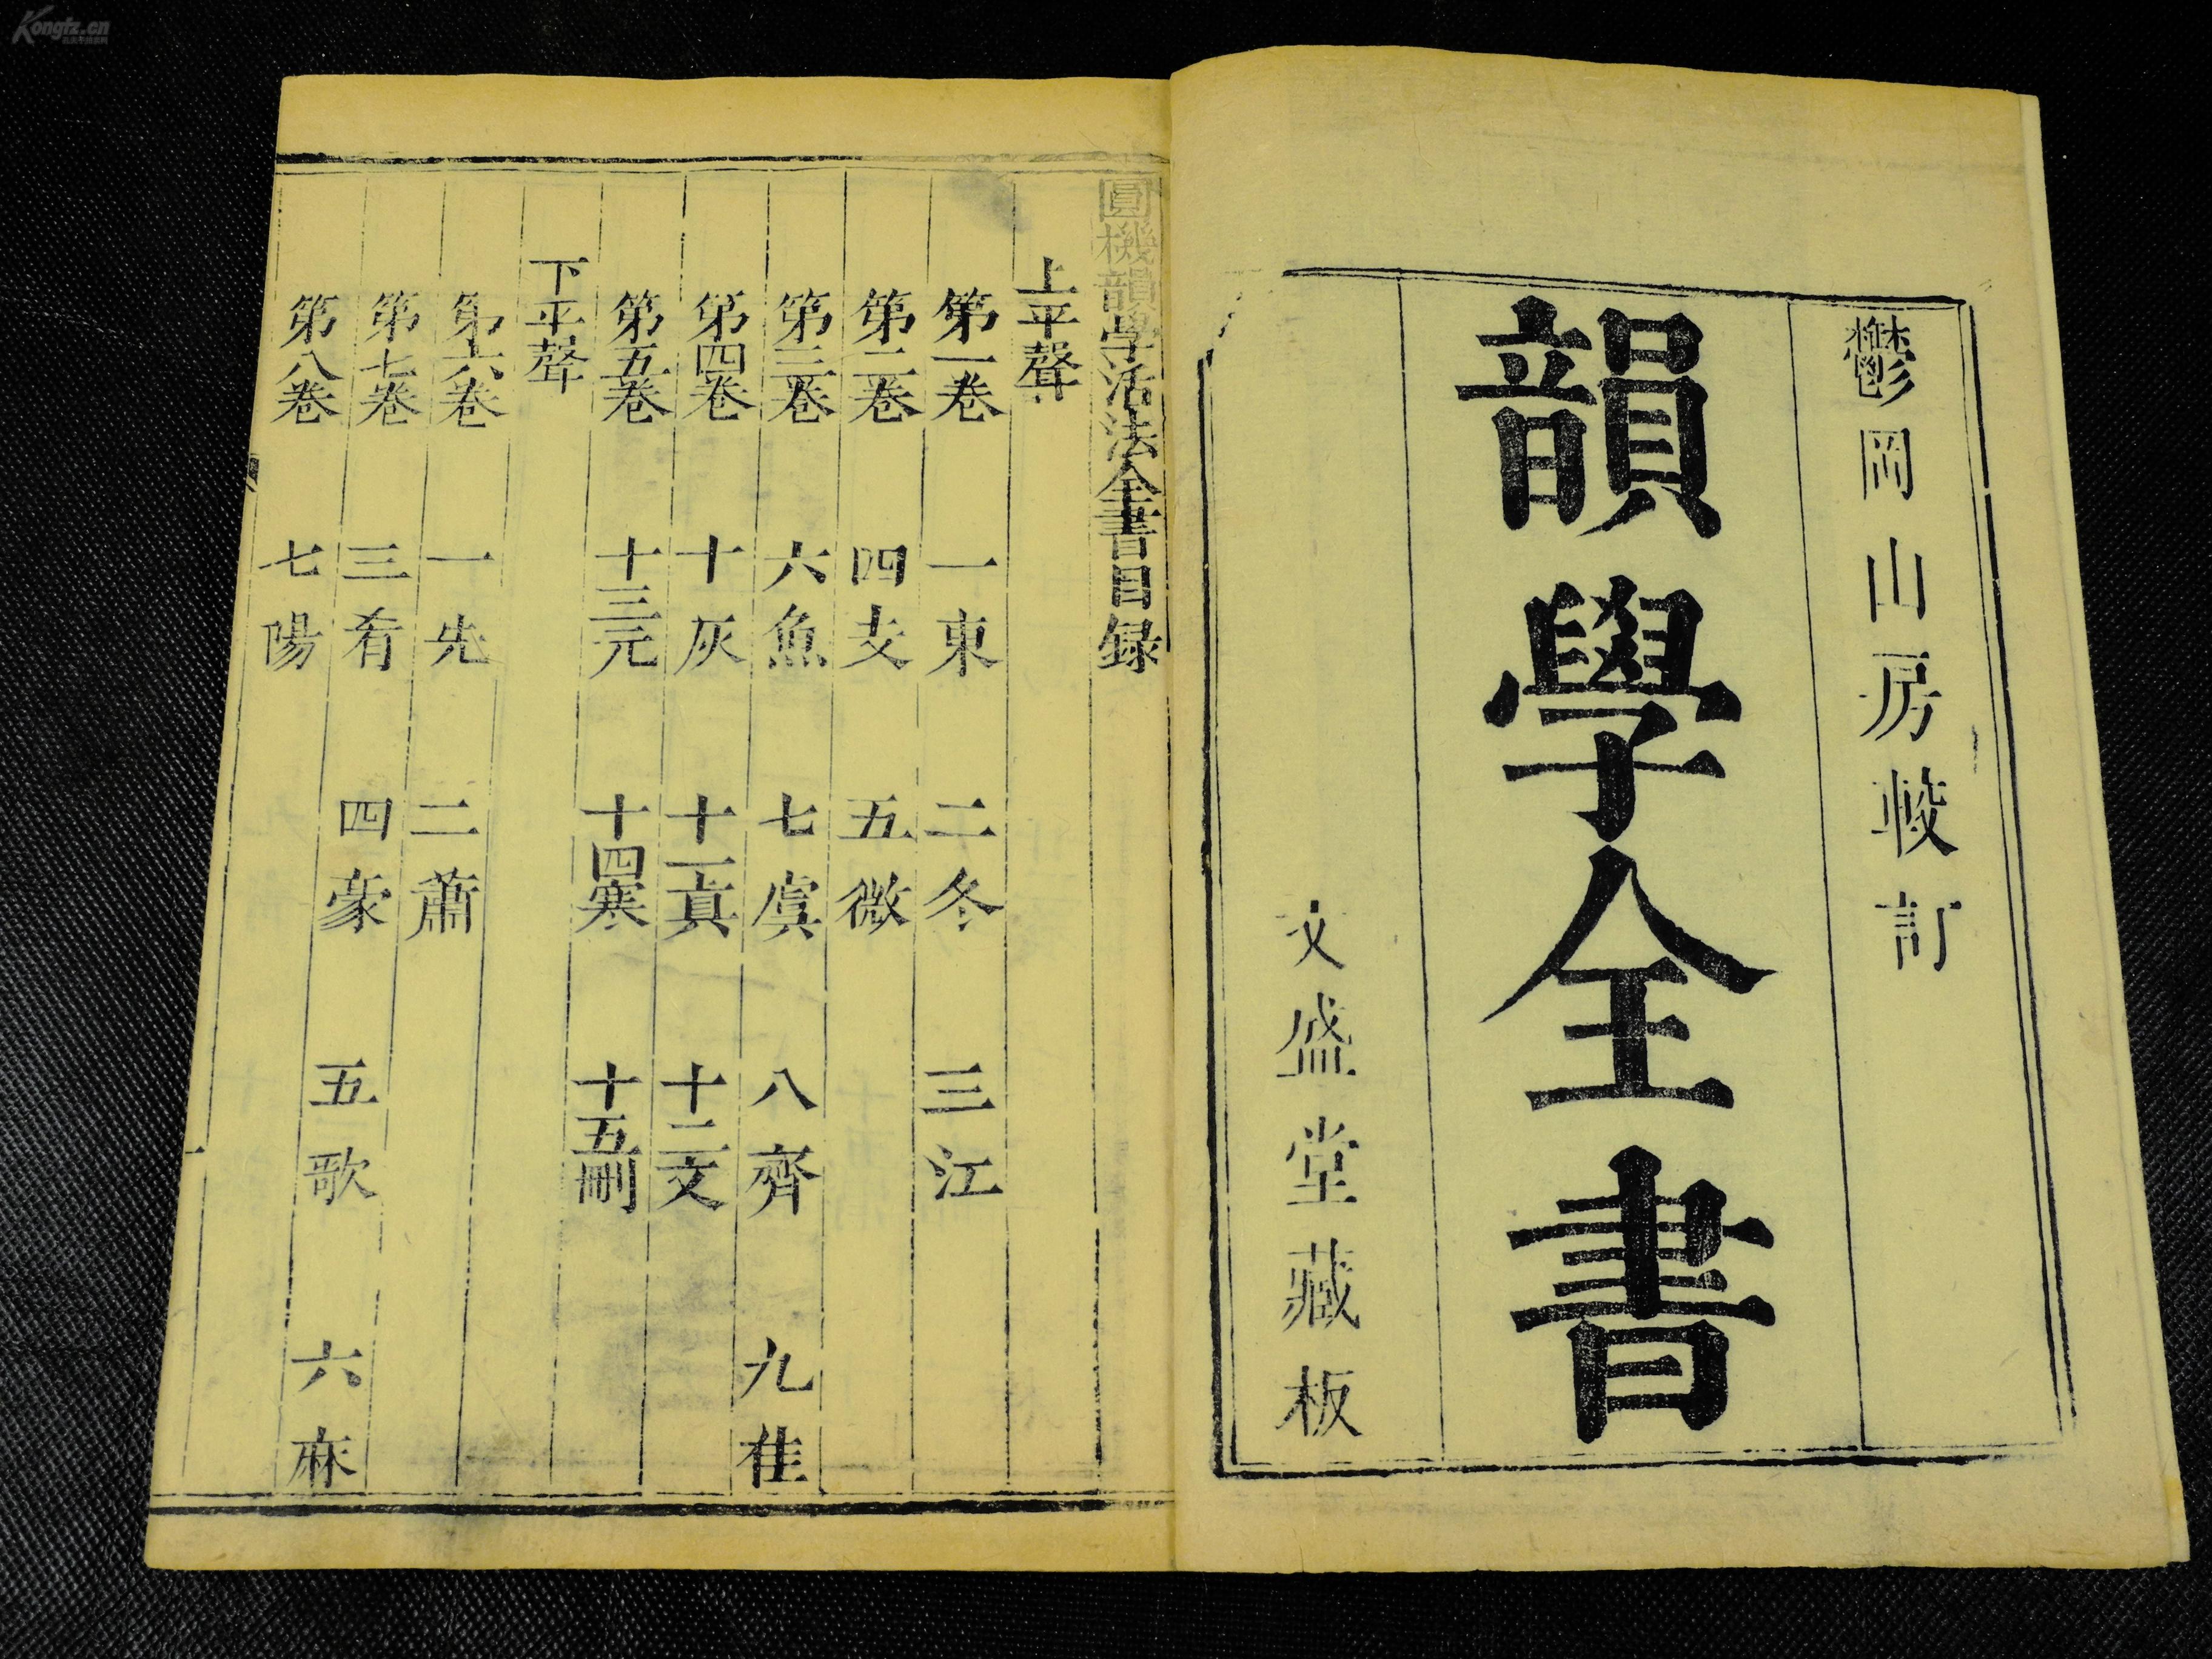 鬱岡山房較訂
韻學全書
文盛堂藏板
圓機韻學活法全書目録
上平聲
第一卷 一東 二冬 三江
第二卷 四支 五微
第三卷 六魚 七虞 八齊 九佳
第四卷 十灰 十一真 十二文
第五卷 十三元 十四寒 十五刪
下平聲
第六卷 一先 二蕭
第七卷 三肴 四豪 五歌 六麻
第八卷 七陽
一
Kongfz.cn